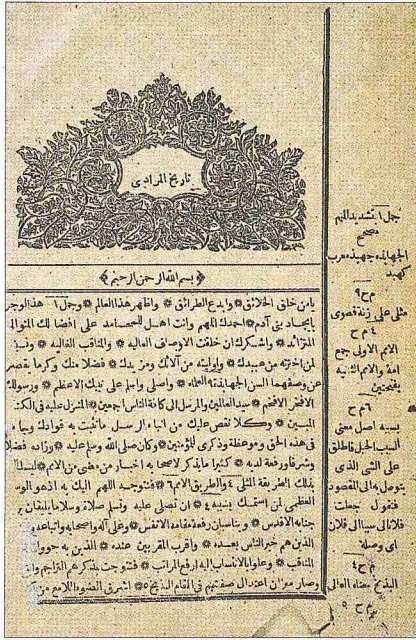 تاريخ المرادي
﴿ بسم الله الرحمن الرحيم ﴾
يامن خلق الخلائق * وابدع الطرائق * واظهر هذا العالم * وجمل ١ هذا الوجود
بايجاد بني آدم * احمدك اللهم وانت اهل للمحامد على افضالك المتوالي
المتزائد * واشكرك ان خلقت الاوصاف العاليه * والمناقب الغاليه *
لمن اخترته من عبيدك * واوليته من آلائك ومزيدك * فضلا منك وكرما يقصر
عن وصفهما السن الجهابذة ٢ العلماء * واصلي واسلم على نبيك الاعظم * ورسولك
الافخر الافخم * سيد العالمين والمرسل الى كافة الناس اجمعين * المنزل عليه في الكتاب
المبين * وكلا نقص عليك من انباء الرسل ما نثبت به فؤادك وجاءك
في هذه الحق وموعظة وذكرى للمؤمنين * وكان صلى الله وسلم عليه * وزاده فضلا
وشرفا ورفعة لديه * كثيرا ما يذكر لاصحابه اخبار من مضى من الامم *
بذلك الطريقة المثلى ٤ والطريق الامم ٦ * فنتوجه اللهم اليك به اذ هو الوسيلة
العظمى لمن استمسك بسببه ٤ ان تصلي عليه وتسلم صلاة وسلاما يليقان
جنابه الاقدس * ويناسبان رفعة مقامه الانفس * وعلى آله واصحابه واتباعه
الذين هم خير الناس بعده * واقرب المقربين عنده * الذين به حووا
المناقب * وعلوا بالانتساب اليه ارفع المراتب * فتتوجت بذكرهم التراجم
وصار ميزان اعتدال صفتهم في المقام البذيخ ٥ * اشرق الضوء اللامع من
جمل ١ بتشديد الميم
مصحح
الجهابذه جهبذ معرب
كهبد
م ح ٩
مثلى على زنة قصوى
٤ م ح
الامم الاولى جمع
امة والامم الثانيه
بفتحتين
٦ م ح
بسببه اصل معنى
السبب الحبل فاطلق
على الشئ الذي
يتوصل به الى المقصود
فتقول جعلت
فلانا لي سببا الى فلان
اي وصلة
م ح ٤
البذيخ معناه العالي
٥ م ح